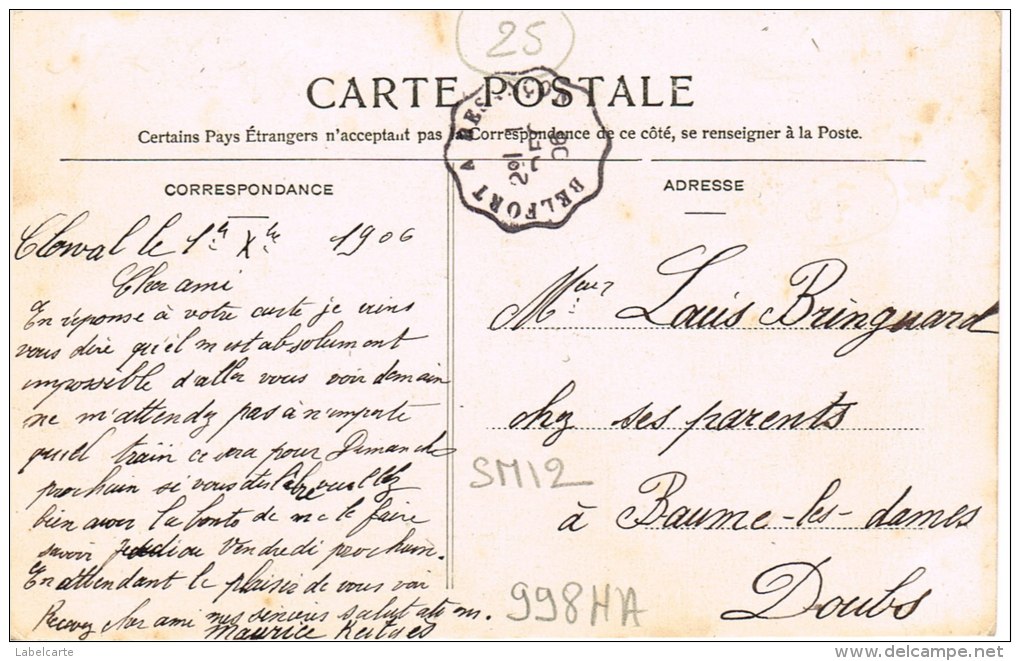 25
CARTE POSTALE
Certains Pays Étrangers n'acceptant pas la Correspondance de ce côté, se renseigner à la Poste.
BELFORT A BES
2º
06
CORRESPONDANCE
Clerval le 1er Xbre 1906
Cher ami
En réponse à votre carte je viens
vous dire qu'il m'est absolument
impossible d'aller vous voir demain
ne m'attendez pas à n'importe
quel train ce sera pour Dimanche
prochain si vous êtes libre veuillez
bien avoir la bonté de me le faire
savoir Jeudi ou Vendredi prochain.
En attendant le plaisir de vous voir
Recevez cher ami mes sincères salutations.
Maurice
ADRESSE
Msieur Louis Bringuard
chez ses parents
à Baume-les-dames
Doubs
SM12
998HA
Labelcarte
www.delcampe.net